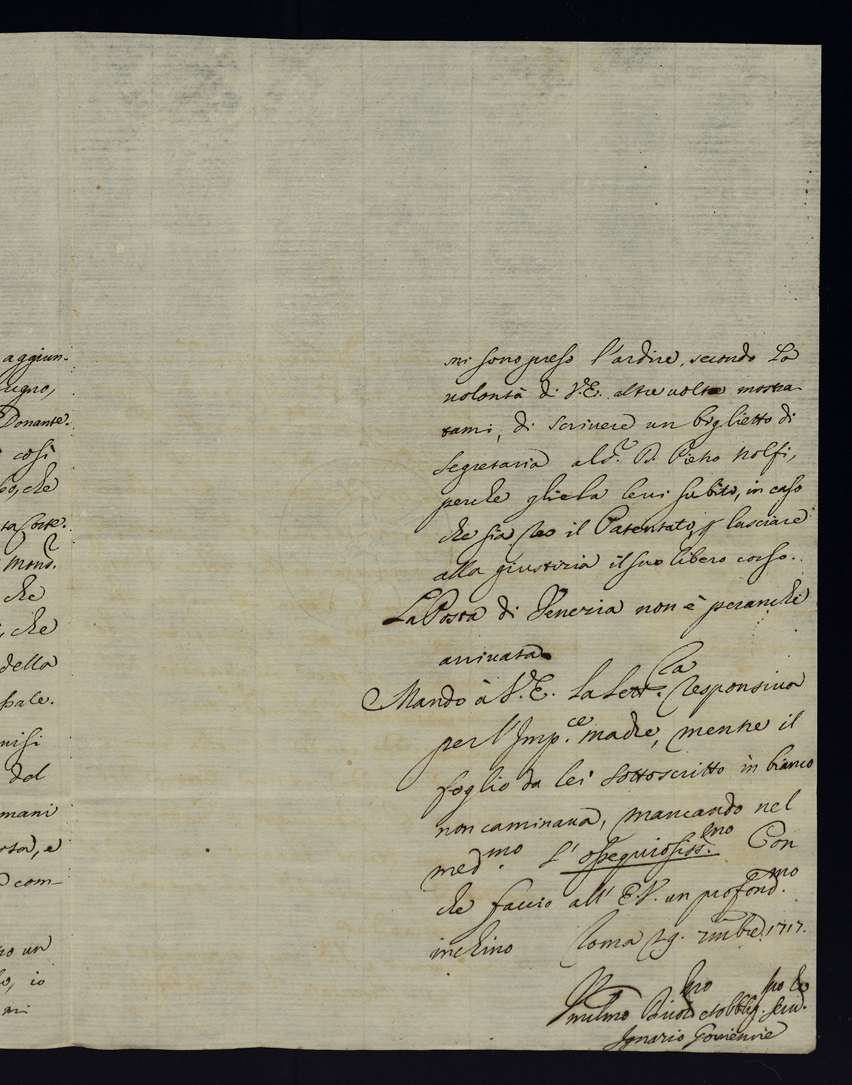 aggiun-
Donante.
così
che
che
, che
della
dal
mani
e
com-
no un
io
mi
mi sono preso l'ardire, secondo la
volontà di V.E. altre volte mostra
tami, di scrivere un biglietto di
segretaria al d.º D. Pietro Nolfi,
perche gliela levi subito, in caso
che sia reo il Patentato, p lasciare
alla giustizia il suo libero corso.
La Posta di Venezia non è peranche
arrivata
Mando à V.E. la lett.ra responsiva
per l'Imp.ce madre, mentre il
foglio da lei sottoscritto in bianco
non caminava, mancando nel
med.mo l'ossequiosiss.mo Con
che faccio all'E.V. un profond.mo
inchino Roma 29. 1717.
Umilmo Divot obblig. serv.
Ignazio